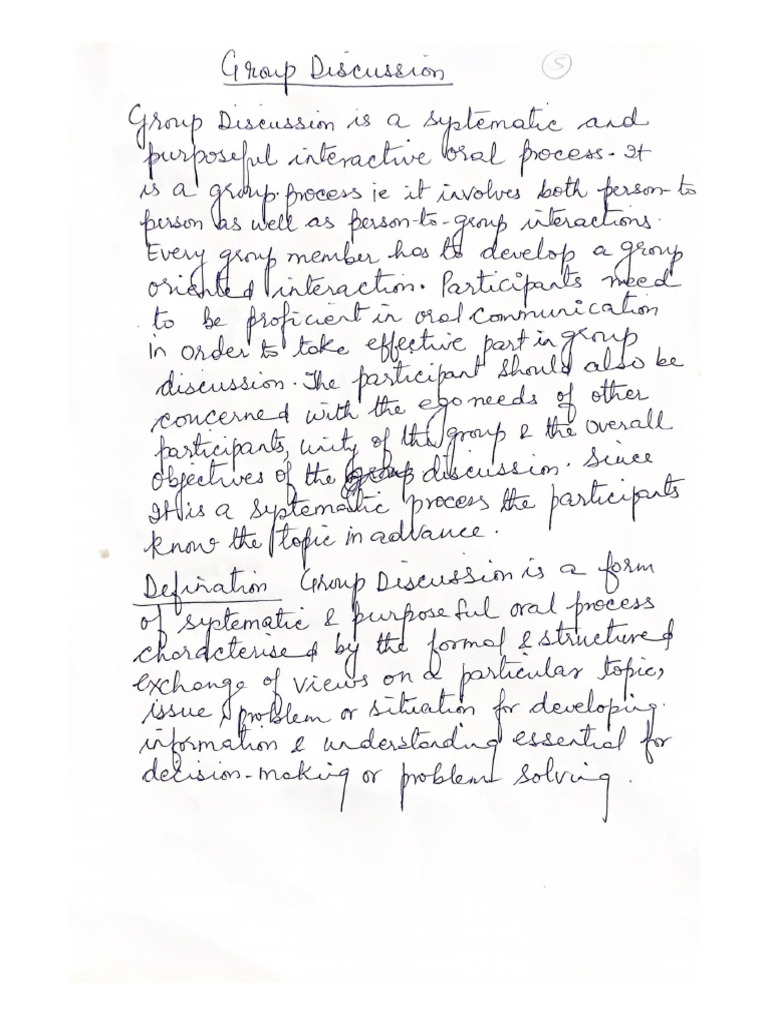 Group Discussion
5
Group Discussion is a systematic and
purposeful interactive oral process. It
is a group. process ie it involves both person-to
person as well as person-to-group interactions.
Every group member has to develop a group
oriented interaction. Participants need
to be proficient in oral communication
in order to take effective part in group
discussion. The participant should also be
concerned with the ego needs of other
participants, unity of the group & the overall
objectives of the discussion. Since
It is a systematic process the participants
know the topic in advance.
Defination Group Discussion is a form
of systematic & purposeful oral process
characterised by the formal & structured
exchange of views on a particular topic,
issue, problem or situation for developing
information & understanding essential for
decision-making or problem solving.